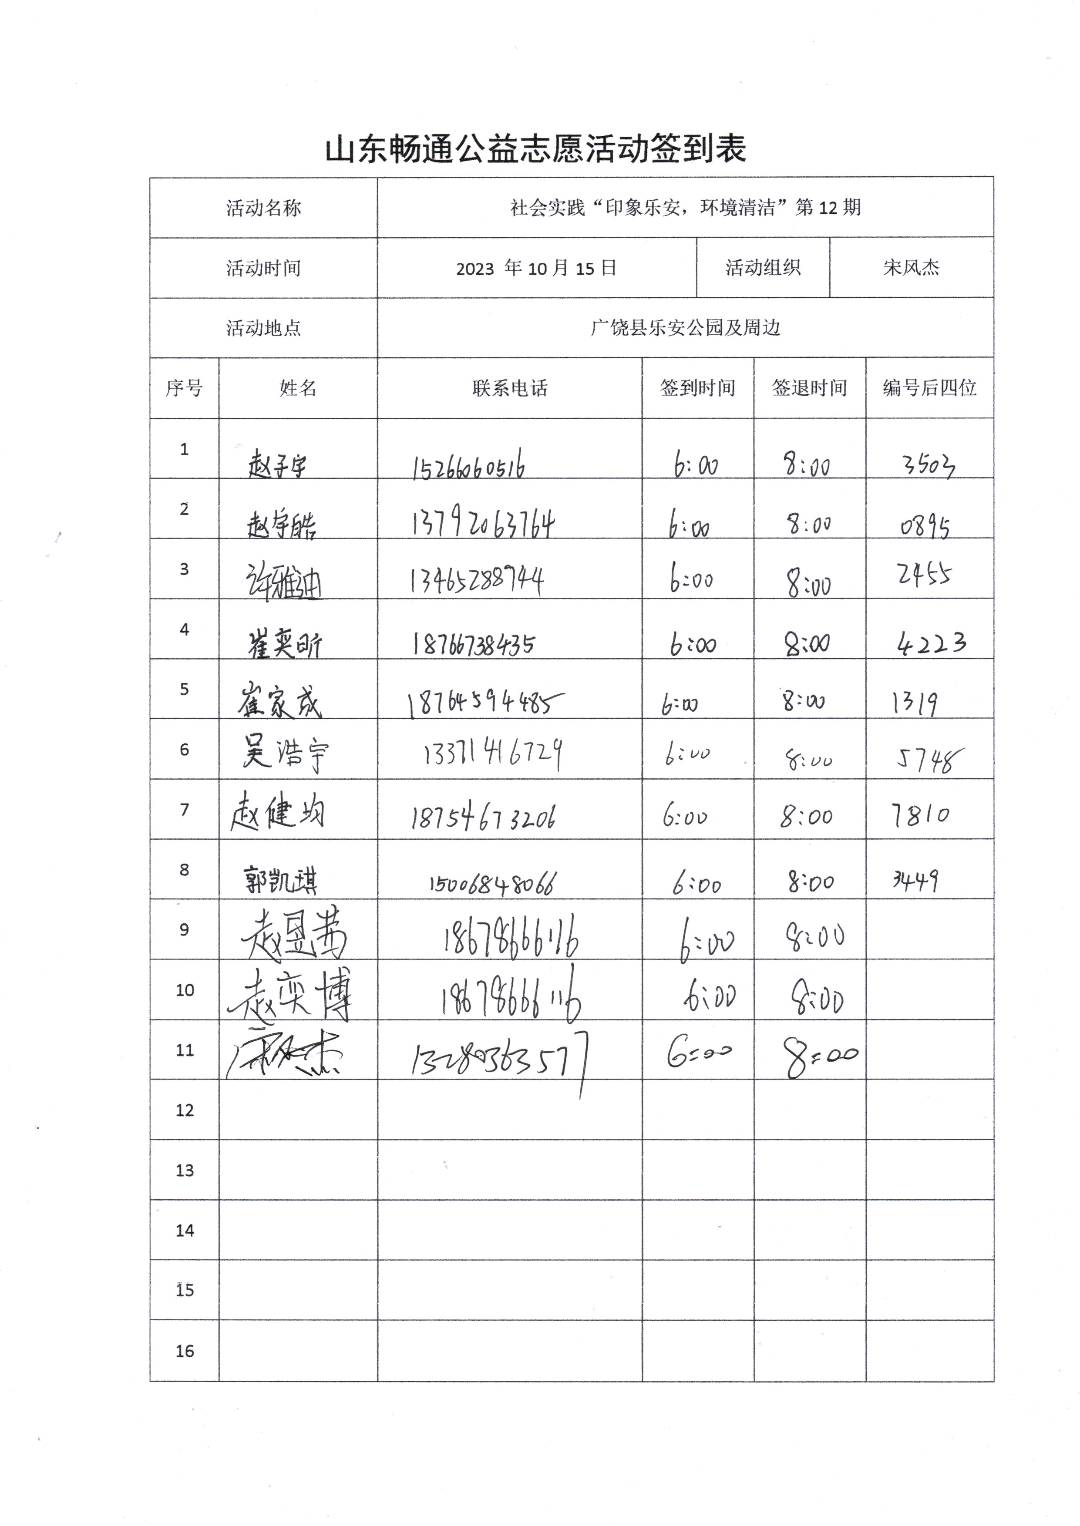 山东畅通公益志愿活动签到表
活动名称 社会实践“印象乐安，环境清洁”第 12 期
活动时间 2023 年 10 月 15 日 活动组织 宋风杰
活动地点 广饶县乐安公园及周边
序号 姓名 联系电话 签到时间 签退时间 编号后四位
1 赵子宇 15266060516 6:00 8:00 3503
2 赵宇皓 13792063764 6:00 8:00 0895
3 许雅迪 13465288744 6:00 8:00 2455
4 崔奕昕 18766738435 6:00 8:00 4223
5 崔家成 18764594485 6:00 8:00 1319
6 吴浩宇 13371416729 6:00 8:00 5748
7 赵健均 18754673206 6:00 8:00 7810
8 郭凯琪 15006848066 6:00 8:00 3449
9 赵昱茜 18678666116 6:00 8:00
10 赵奕博 18678666116 6:00 8:00
11 宋风杰 13280363577 6:00 8:00
12
13
14
15
16